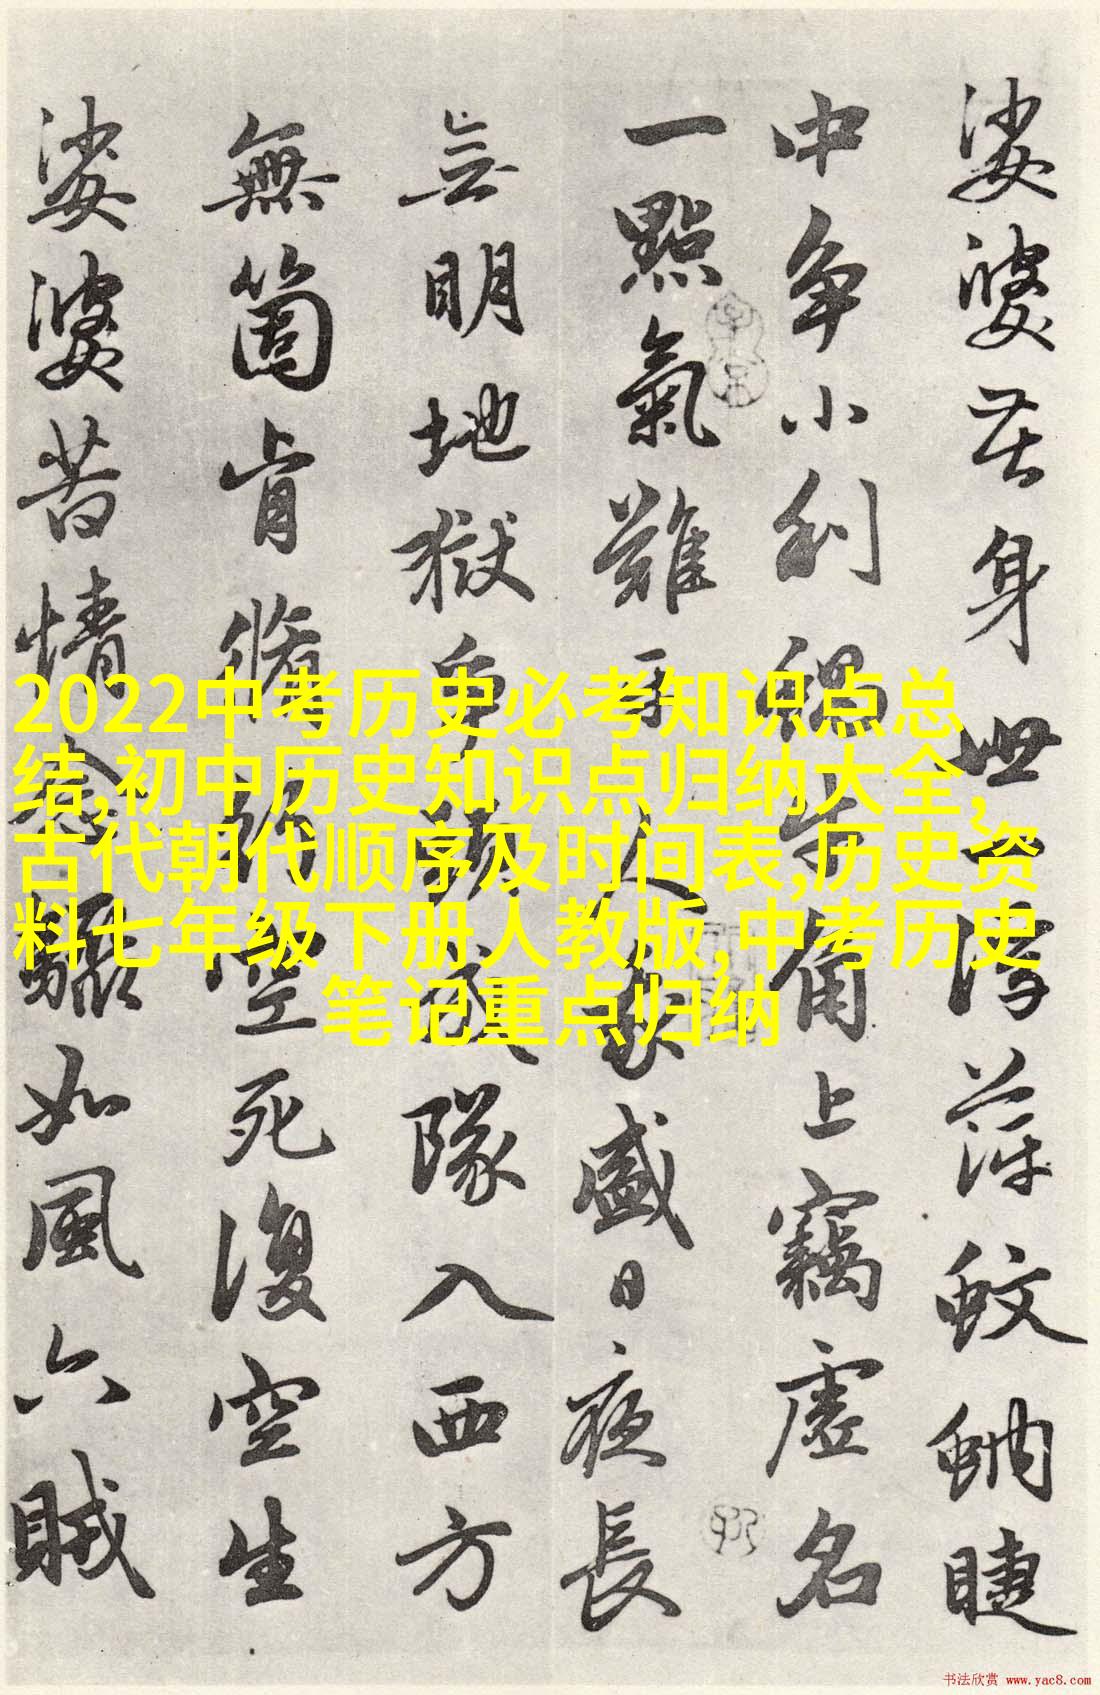 娑婆苦身世一浮萍蚊蚋睫
中爭小利蝸牛角上竊虛名
一點氣難平人我盛日夜長
無明地獄爭頭成隊入西方
無箇肯脩行空死復空生
娑婆苦情念驟如風六賊
2022中考历史必考知识点总
结,初中历史知识点归纳大全,
古代朝代顺序及时间表,历史资
料七年级下册人教版,中考历史
笔记重点归纳
书法欣赏 www.yac8.com